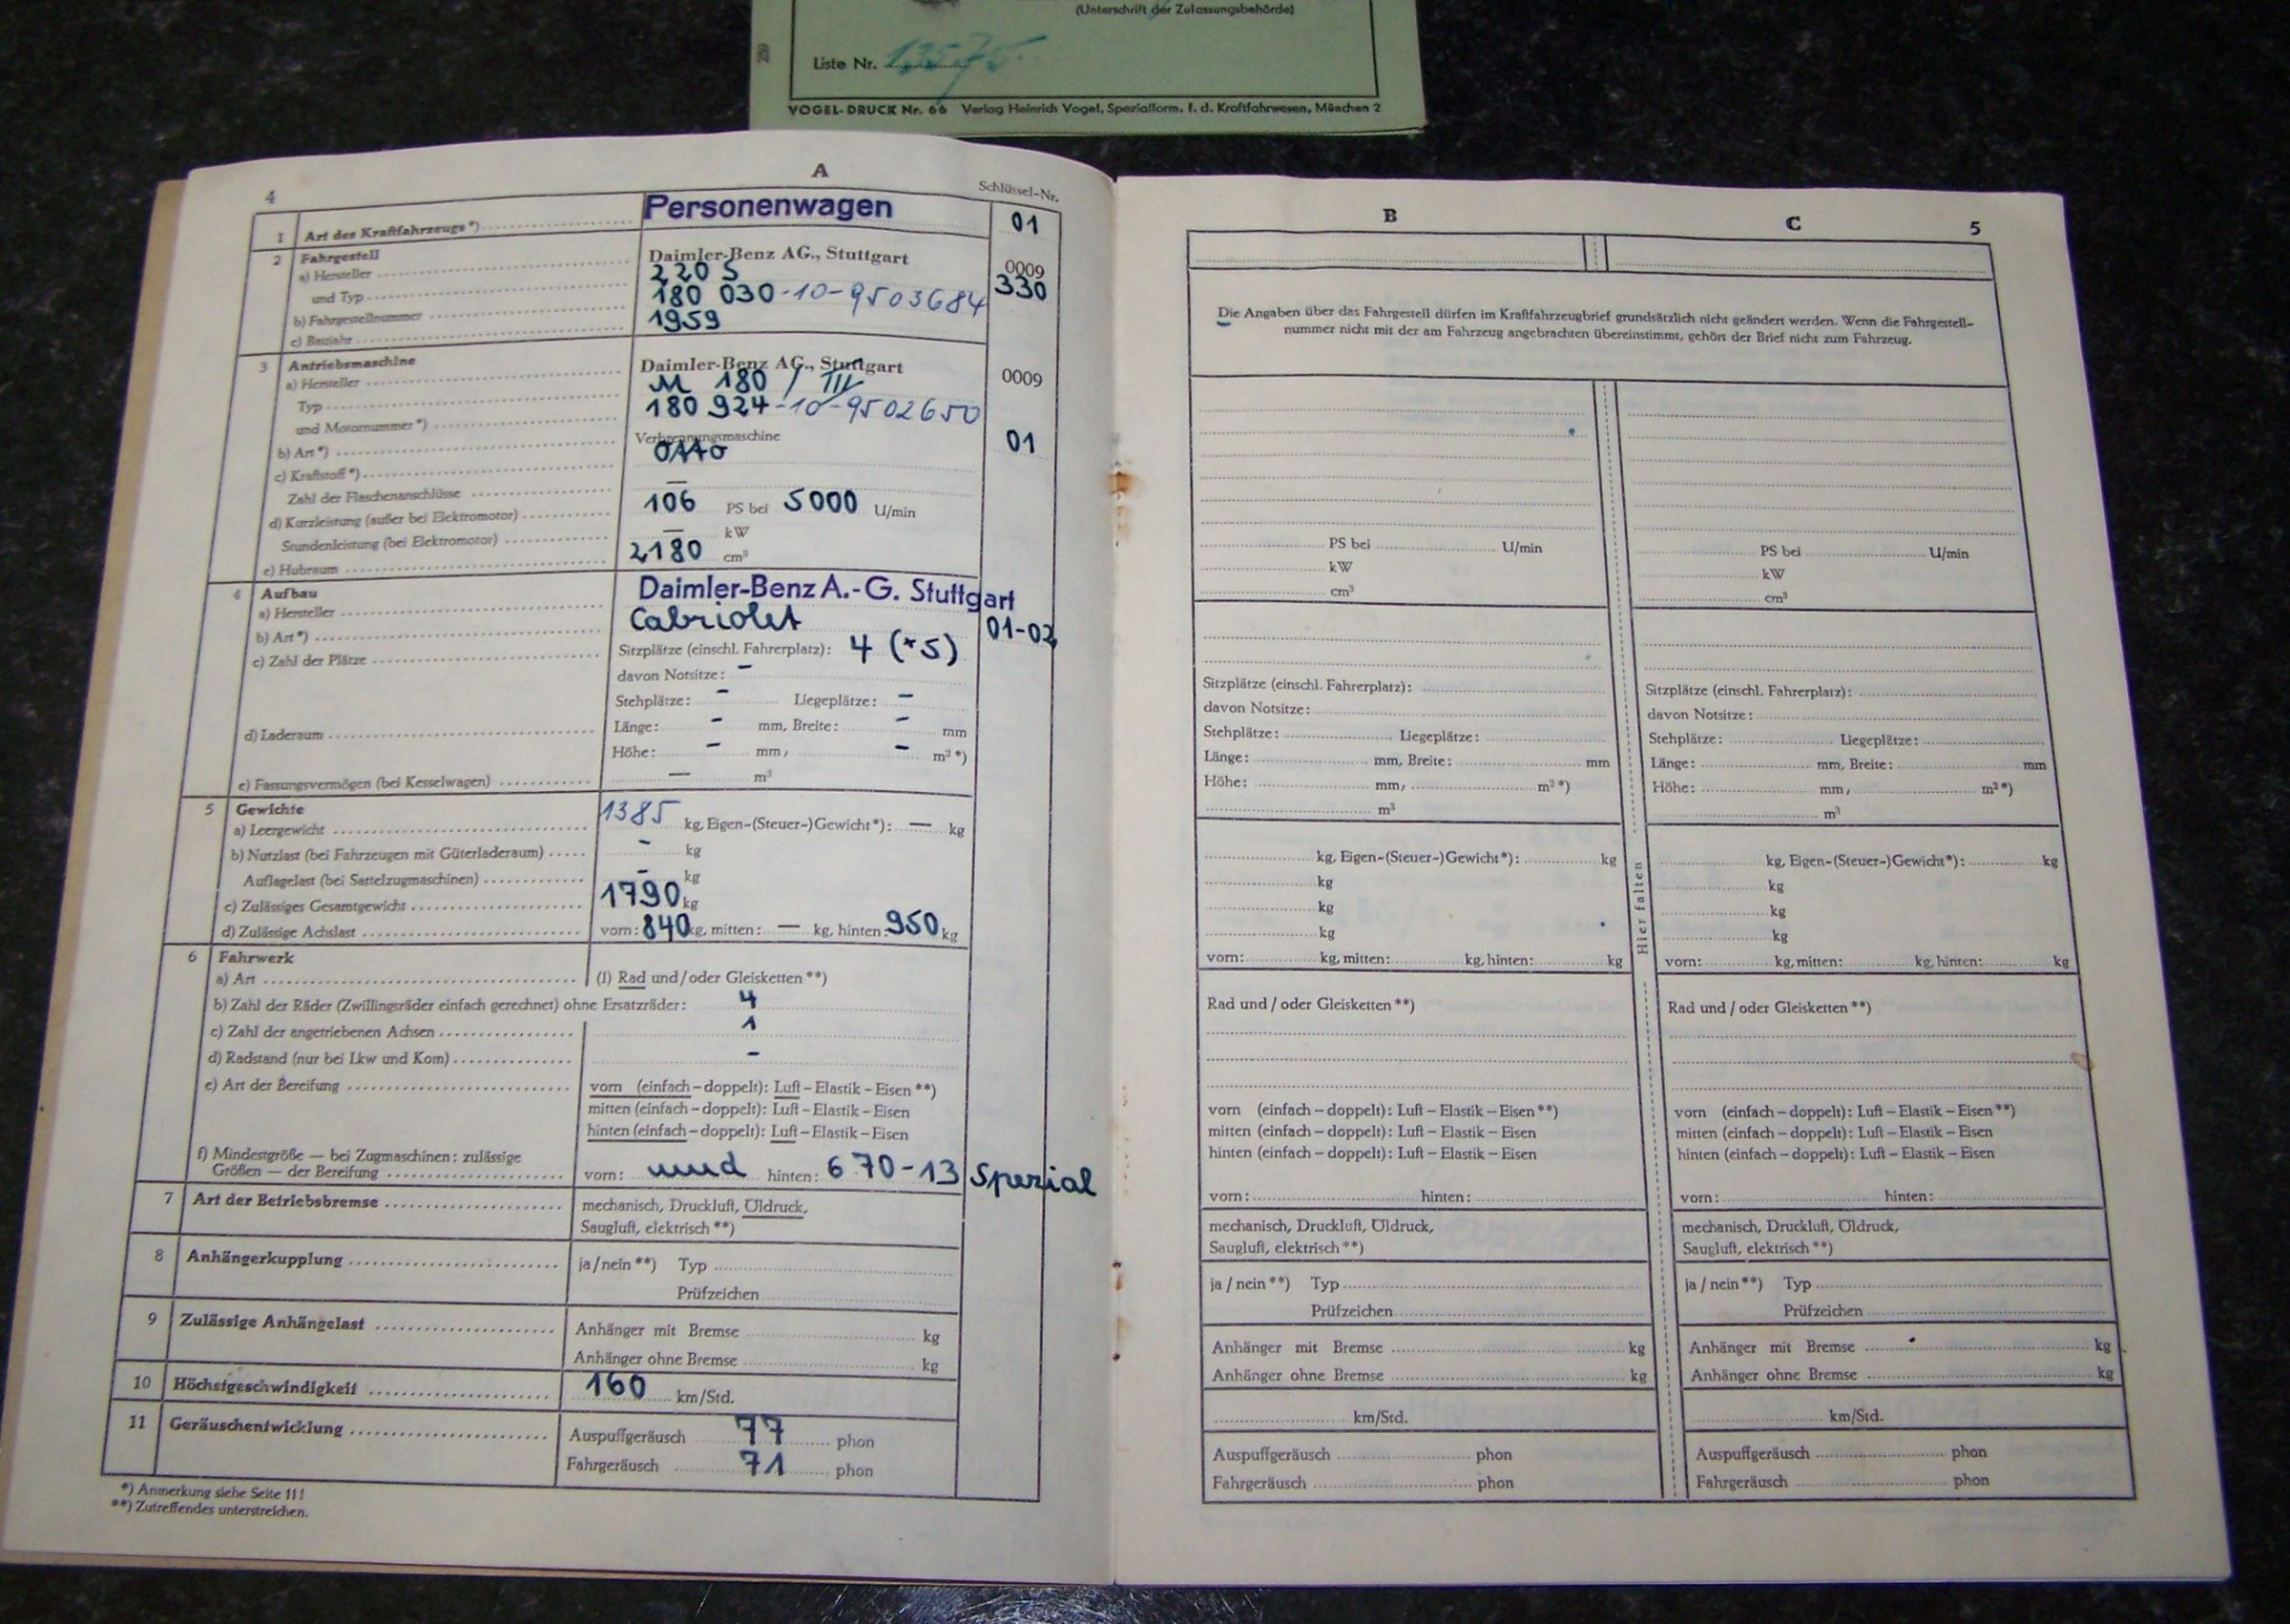 (Unterschrift der Zulassungsbehörde)
259
Liste Nr. 13575
VOGEL-DRUCK Nr. 66 Verlag Heinrich Vogel, Spezialform. f. d. Kraftfahrwesen, München 2
4
A
Schlüssel-Nr.
1 Art des Kraftfahrzeugs *) Personenwagen 01
2 Fahrgestell
a) Hersteller Daimler-Benz AG., Stuttgart 0009
und Typ 220 S 330
b) Fahrgestellnummer 180 030-10-9503684
c) Baujahr 1959
3 Antriebsmaschine
a) Hersteller Daimler-Benz AG., Stuttgart 0009
Typ M 180 / III
und Motornummer *) 180 924-10-9502650
b) Art *) Verbrennungsmaschine
c) Kraftstoff *) Otto 01
Zahl der Flaschenanschlüsse —
d) Kurzleistung (außer bei Elektromotor) 106 PS bei 5000 U/min
Stundenleistung (bei Elektromotor) — kW
e) Hubraum 2180 cm³
4 Aufbau
a) Hersteller Daimler-Benz A.-G. Stuttgart
b) Art *) Cabriolet 01-02
c) Zahl der Plätze Sitzplätze (einschl. Fahrerplatz): 4 (+5)
davon Notsitze: -
Stehplätze: - Liegeplätze: -
d) Laderaum Länge: - mm, Breite: - mm
Höhe: - mm, - m² *)
e) Fassungsvermögen (bei Kesselwagen) — m³
5 Gewichte
a) Leergewicht 1385 kg, Eigen-(Steuer-)Gewicht *): — kg
b) Nutzlast (bei Fahrzeugen mit Güterladeraum) - kg
Auflagelast (bei Sattelzugmaschinen) - kg
c) Zulässiges Gesamtgewicht 1790 kg
d) Zulässige Achslast vorn: 840 kg, mitten: — kg, hinten: 950 kg
6 Fahrwerk
a) Art (1) Rad und/oder Gleisketten **)
b) Zahl der Räder (Zwillingsräder einfach gerechnet) ohne Ersatzräder: 4
c) Zahl der angetriebenen Achsen 1
d) Radstand (nur bei Lkw und Kom) -
e) Art der Bereifung vorn (einfach – doppelt): Luft – Elastik – Eisen **)
mitten (einfach – doppelt): Luft – Elastik – Eisen
hinten (einfach – doppelt): Luft – Elastik – Eisen
f) Mindestgröße — bei Zugmaschinen: zulässige
Größen — der Bereifung vorn: und hinten: 6 70-13 Spezial
7 Art der Betriebsbremse mechanisch, Druckluft, Öldruck,
Saugluft, elektrisch **)
8 Anhängerkupplung ja/nein **) Typ
Prüfzeichen
9 Zulässige Anhängelast Anhänger mit Bremse kg
Anhänger ohne Bremse kg
10 Höchstgeschwindigkeit 160 km/Std.
11 Geräuschentwicklung Auspuffgeräusch 77 phon
Fahrgeräusch 71 phon
*) Anmerkung siehe Seite 11!
**) Zutreffendes unterstreichen.
B C 5
Die Angaben über das Fahrgestell dürfen im Kraftfahrzeugbrief grundsätzlich nicht geändert werden. Wenn die Fahrgestell-
nummer nicht mit der am Fahrzeug angebrachten übereinstimmt, gehört der Brief nicht zum Fahrzeug.
PS bei U/min PS bei U/min
kW kW
cm³ cm³
Sitzplätze (einschl. Fahrerplatz): Sitzplätze (einschl. Fahrerplatz):
davon Notsitze: davon Notsitze:
Stehplätze: Liegeplätze: Stehplätze: Liegeplätze:
Länge: mm, Breite: mm Länge: mm, Breite: mm
Höhe: mm, m² *) Höhe: mm, m² *)
m³ m³
kg, Eigen-(Steuer-)Gewicht *): kg kg, Eigen-(Steuer-)Gewicht *): kg
kg kg
kg kg
kg kg
Hier falten
vorn: kg, mitten: kg, hinten: kg vorn: kg, mitten: kg, hinten: kg
Rad und / oder Gleisketten **) Rad und / oder Gleisketten **)
vorn (einfach – doppelt): Luft – Elastik – Eisen **) vorn (einfach – doppelt): Luft – Elastik – Eisen **)
mitten (einfach – doppelt): Luft – Elastik – Eisen mitten (einfach – doppelt): Luft – Elastik – Eisen
hinten (einfach – doppelt): Luft – Elastik – Eisen hinten (einfach – doppelt): Luft – Elastik – Eisen
vorn: hinten: vorn: hinten:
mechanisch, Druckluft, Öldruck, mechanisch, Druckluft, Öldruck,
Saugluft, elektrisch **) Saugluft, elektrisch **)
ja / nein **) Typ ja / nein **) Typ
Prüfzeichen Prüfzeichen
Anhänger mit Bremse kg Anhänger mit Bremse kg
Anhänger ohne Bremse kg Anhänger ohne Bremse kg
km/Std. km/Std.
Auspuffgeräusch phon Auspuffgeräusch phon
Fahrgeräusch phon Fahrgeräusch phon